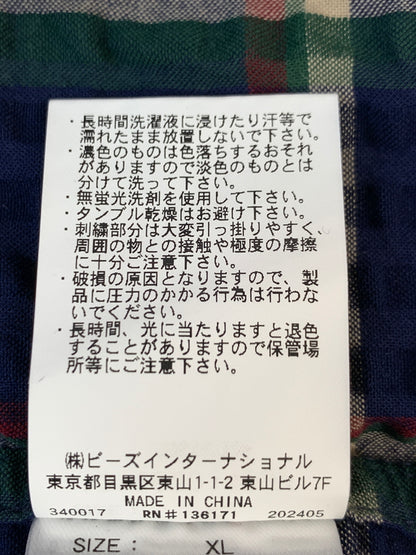 ・長時間洗濯液に浸けたり汗等で
濡れたまま放置しないで下さい。
・濃色のものは色落ちするおそれ
がありますので淡色のものとは
分けて洗って下さい。
・無蛍光洗剤を使用して下さい。
・タンブル乾燥はお避け下さい。
・刺繍部分は大変引っ掛りやすく、
周囲の物との接触や極度の摩擦
に十分ご注意下さい。
・破損の原因となりますので、製
品に圧力のかかる行為は行わな
いでください。
・長時間、光に当たりますと退色
することがありますので保管場
所等にご注意下さい。
㈱ビーズインターナショナル
東京都目黒区東山1-1-2 東山ビル7F
MADE IN CHINA
340017 RN#136171 202405
SIZE: XL